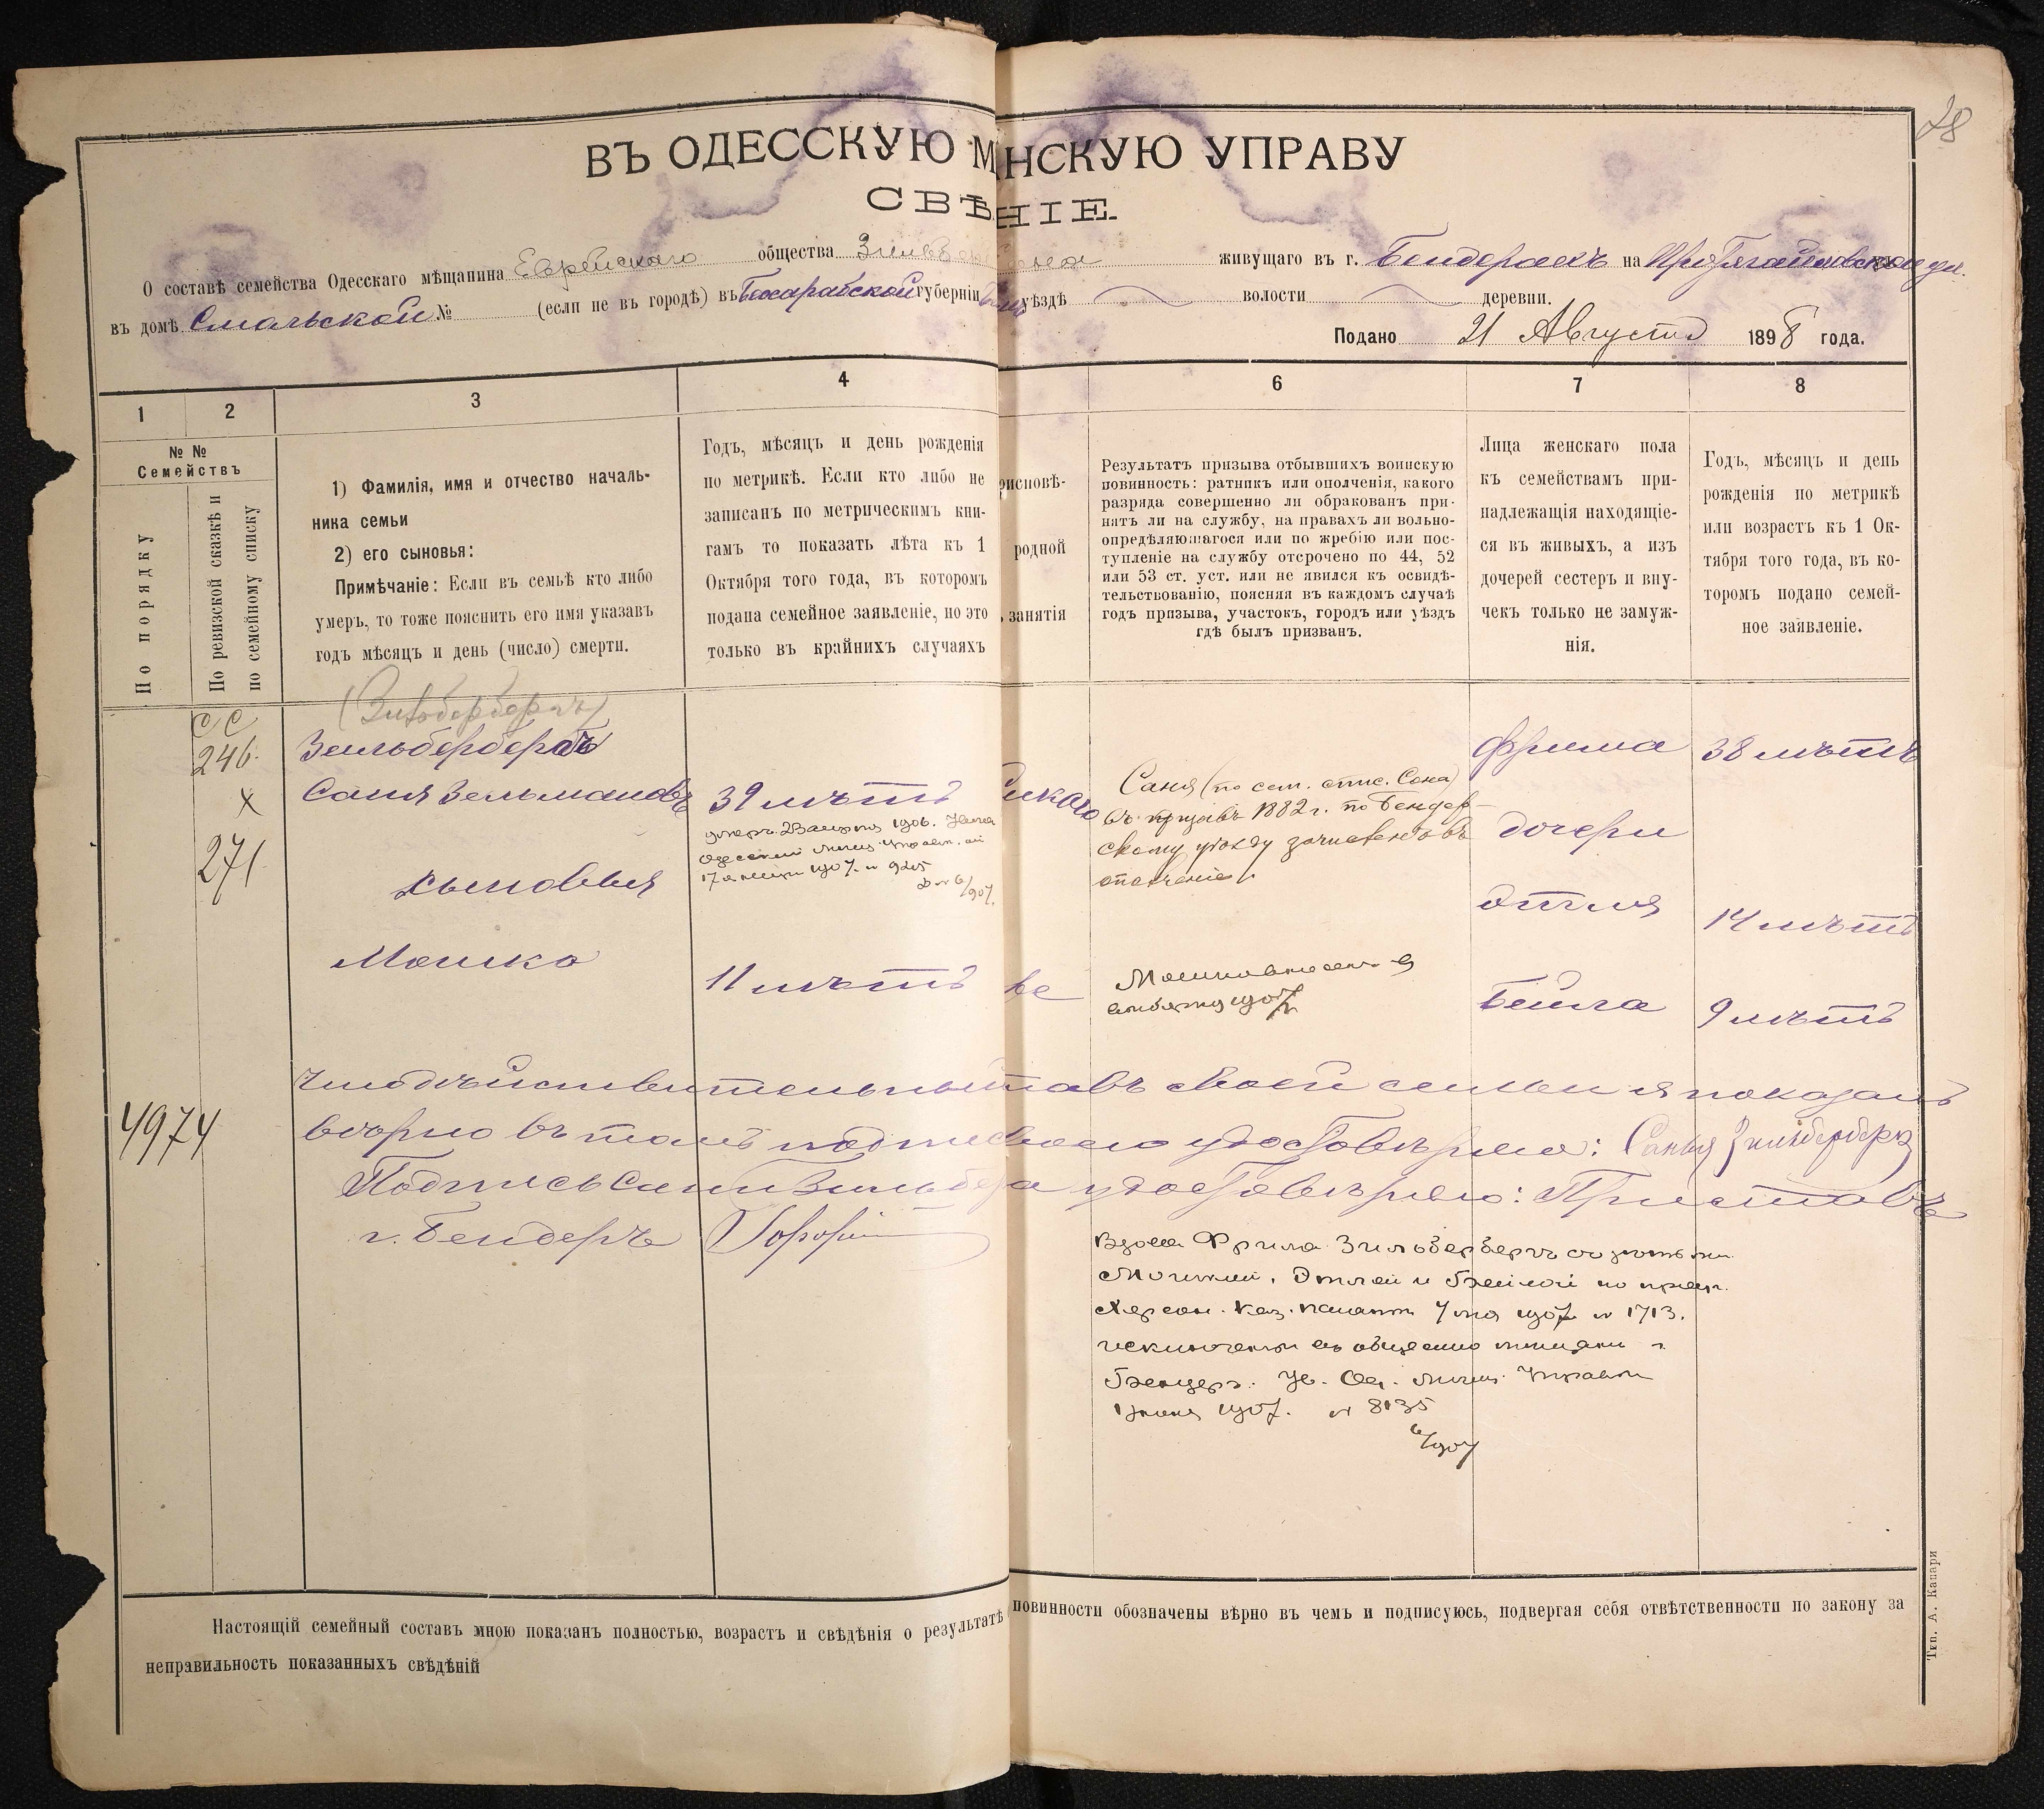 28
ВЪ ОДЕССКУЮ М НСКУЮ УПРАВУ
СВѢ НІЕ.
О составѣ семейства Одесскаго мѣщанина Еврейскаго общества живущаго въ г. Бендерахъ на ул.
въ домѣ Смольской № (если не въ городѣ) въ Бессарабской губерніи уѣздѣ волости деревни.
Подано 21 Августа 1898 года.
1 2 3 4 6 7 8
№ №
Семействъ
По порядку
По ревизской сказкѣ и
по семейному списку
1) Фамилія, имя и отчество началь-
ника семьи
2) его сыновья:
Примѣчаніе: Если въ семьѣ кто либо
умеръ, то тоже пояснить его имя указавъ
годъ мѣсяцъ и день (число) смерти.
Годъ, мѣсяцъ и день рожденія
по метрикѣ. Если кто либо не
записанъ по метрическимъ кни-
гамъ то показать лѣта къ 1
Октября того года, въ которомъ
подана семейное заявленіе, но это
только въ крайнихъ случаяхъ
рисповѣ-
родной
занятія
Результатъ призыва отбывшихъ воинскую
повинность: ратникъ или ополченія, какого
разряда совершенно ли обракованъ при-
нятъ ли на службу, на правахъ ли вольно-
опредѣляющагося или по жребію или пос-
тупленіе на службу отсрочено по 44, 52
или 53 ст. уст. или не явился къ освидѣ-
тельствованію, поясняя въ каждомъ случаѣ
годъ призыва, участокъ, городъ или уѣздъ
гдѣ былъ призванъ.
Лица женскаго пола
къ семействамъ при-
надлежащія находящіе-
ся въ живыхъ, а изъ
дочерей сестеръ и вну-
чекъ только не замуж-
нія.
Годъ, мѣсяцъ и день
рожденія по метрикѣ
или возрастъ къ 1 Ок-
тября того года, въ ко-
торомъ подано семей-
ное заявленіе.
(Зильберберъ)
СС
246.
х
271
Зильберберъ
Саня Зельмановъ
39 лѣтъ
умеръ 23 1906. Увѣд.
Одесской Мѣщ. Управы. отъ
17 1907. № 9205
6/907.
Саня (по сем. спис. Сока)
въ призывъ 1882 г. по Бендер-
скому уѣзду зачисленъ въ
ополченіе
Фрима
38 лѣтъ
Сыновья
дочери
Этля
14 лѣтъ
Мошко
11 лѣтъ
1907
Бейла
9 лѣтъ
4974
Что дѣйствительны составъ своей семьи я показалъ
вѣрно въ томъ подписью удостовѣряю: Саня Зильберберъ
Подпись Сани удостовѣряю: Приставъ
г. Бендеръ
Вдова Фрима Зильбербергъ съ дѣтьми
Мошкой, Этлей и Бейлой по
Херсон. Каз. Палаты 7 мая 1907 № 1713.
исключены въ общество мѣщанъ г.
Бендеръ. Ув. Од. Мѣщ. Управы
1907. № 8135
6/907
Настоящій семейный составъ мною показанъ полностью, возрастъ и свѣдѣнія о результатѣ повинности обозначены вѣрно въ чемъ и подписуюсь, подвергая себя отвѣтственности по закону за
неправильность показанныхъ свѣдѣній
Тип. А. Капари